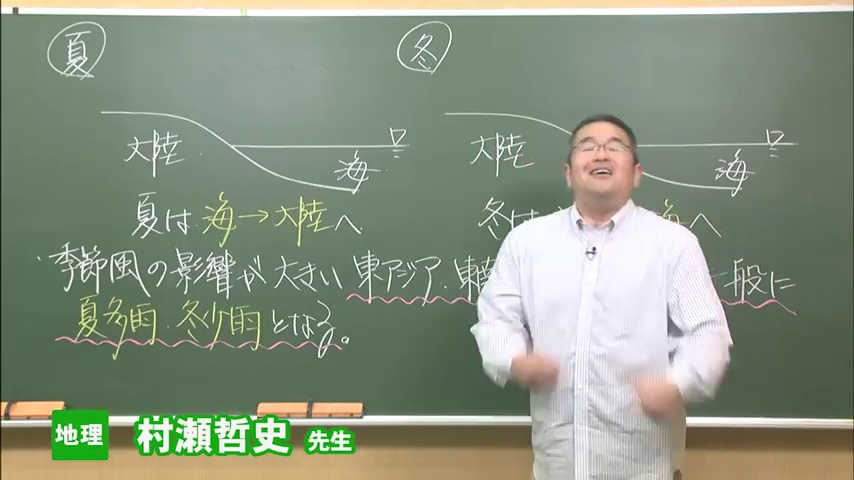 夏
冬
大陸 海
大陸 海
夏は 海→大陸へ
冬は 海へ
季節風の影響が大きい東アジア・東 一般に
夏多雨・冬少雨となる。
地理 村瀬哲史 先生